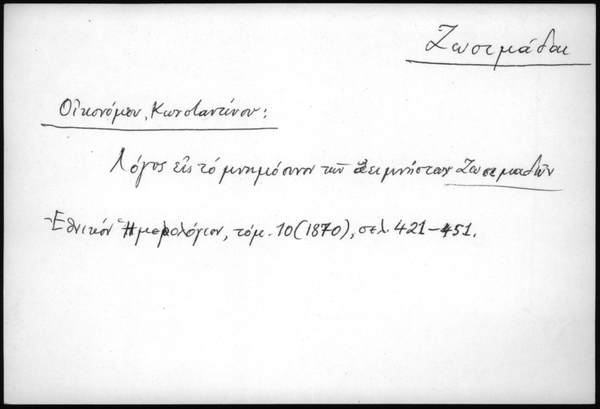 Ζωσιμάδαι
Οἰκονόμου, Κωνσταντίνου:
Λόγος εἰς τό μνημόσυνον τῶν ἀειμνήστων Ζωσιμαδῶν
Ἐθνικόν Ἡμερολόγιον, τόμ. 10 (1870), σελ. 421-451.